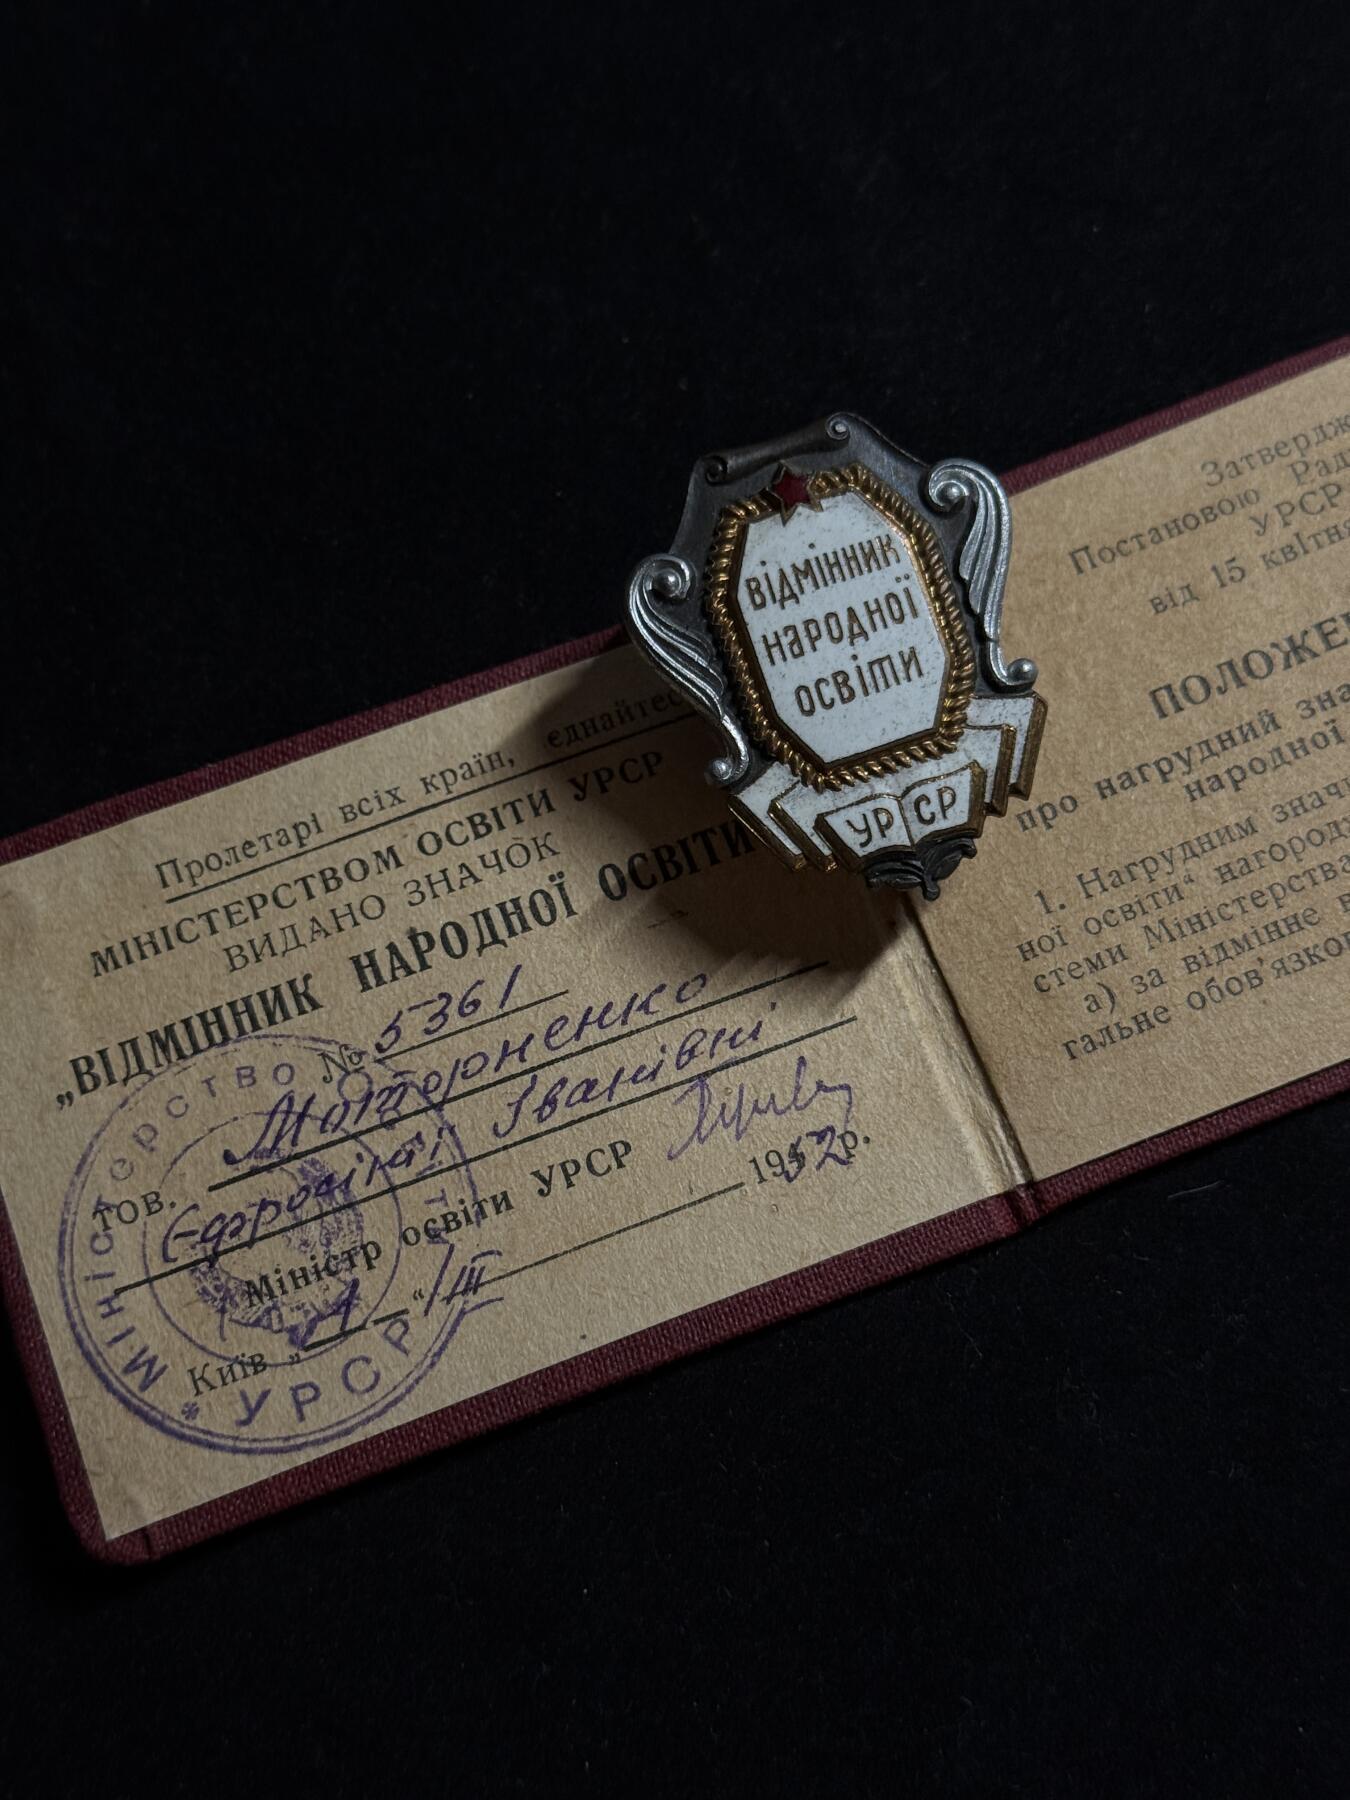 ВІДМІННИК
НАРОДНОЇ
ОСВІТИ
УРСР
Пролетарі всіх країн, єднайтес
МІНІСТЕРСТВОМ ОСВІТИ УРСР
ВИДАНО ЗНАЧОК
„ВІДМІННИК НАРОДНОЇ ОСВІТИ
№ 5361
тов. Моторненко
Єфросінії Іванівні
Міністр освіти УРСР
Київ „1“ III 1952 р.
Міністерство
УРСР
Затвердж
Постановою Рад
УРСР
від 15 квітня
ПОЛОЖЕ
про нагрудний зна
народної
1. Нагрудним знач
ної освіти“ нагород
стеми Міністерства
а) за відмінне в
гальне обов'язко